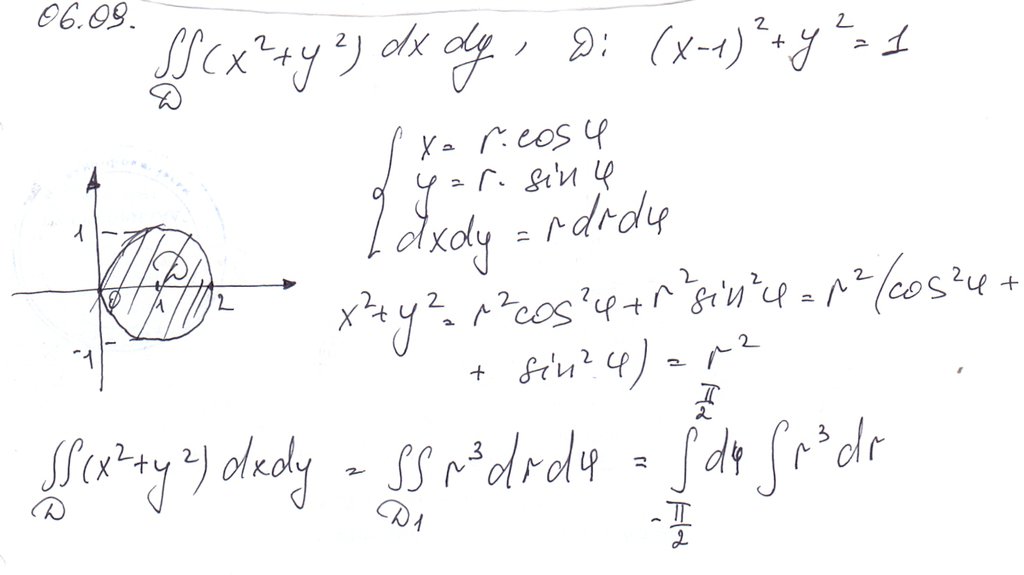 06.09.
∬(x²+y²) dx dy, D: (x-1)²+y²=1
D
{ x = r·cos φ
y = r· sin φ
dxdy = r dr dφ
1
D
0 1 2
-1
x²+y² = r²cos²φ + r²sin²φ = r²(cos²φ +
+ sin²φ) = r²
π/2
∬(x²+y²) dxdy = ∬ r³ dr dφ = ∫dφ ∫r³ dr
D D₁ -π/2